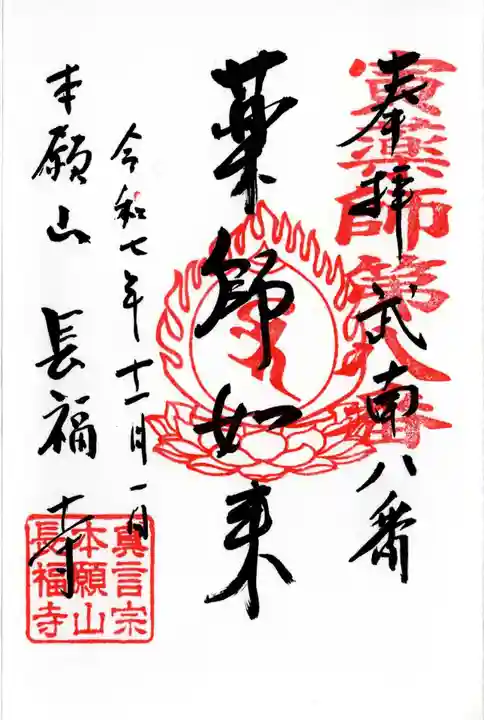 奉拝 武南八番
寅薬師第八番
薬師如来
令和七年十一月一日
本願山 長福寺
真言宗
本願山
長福寺